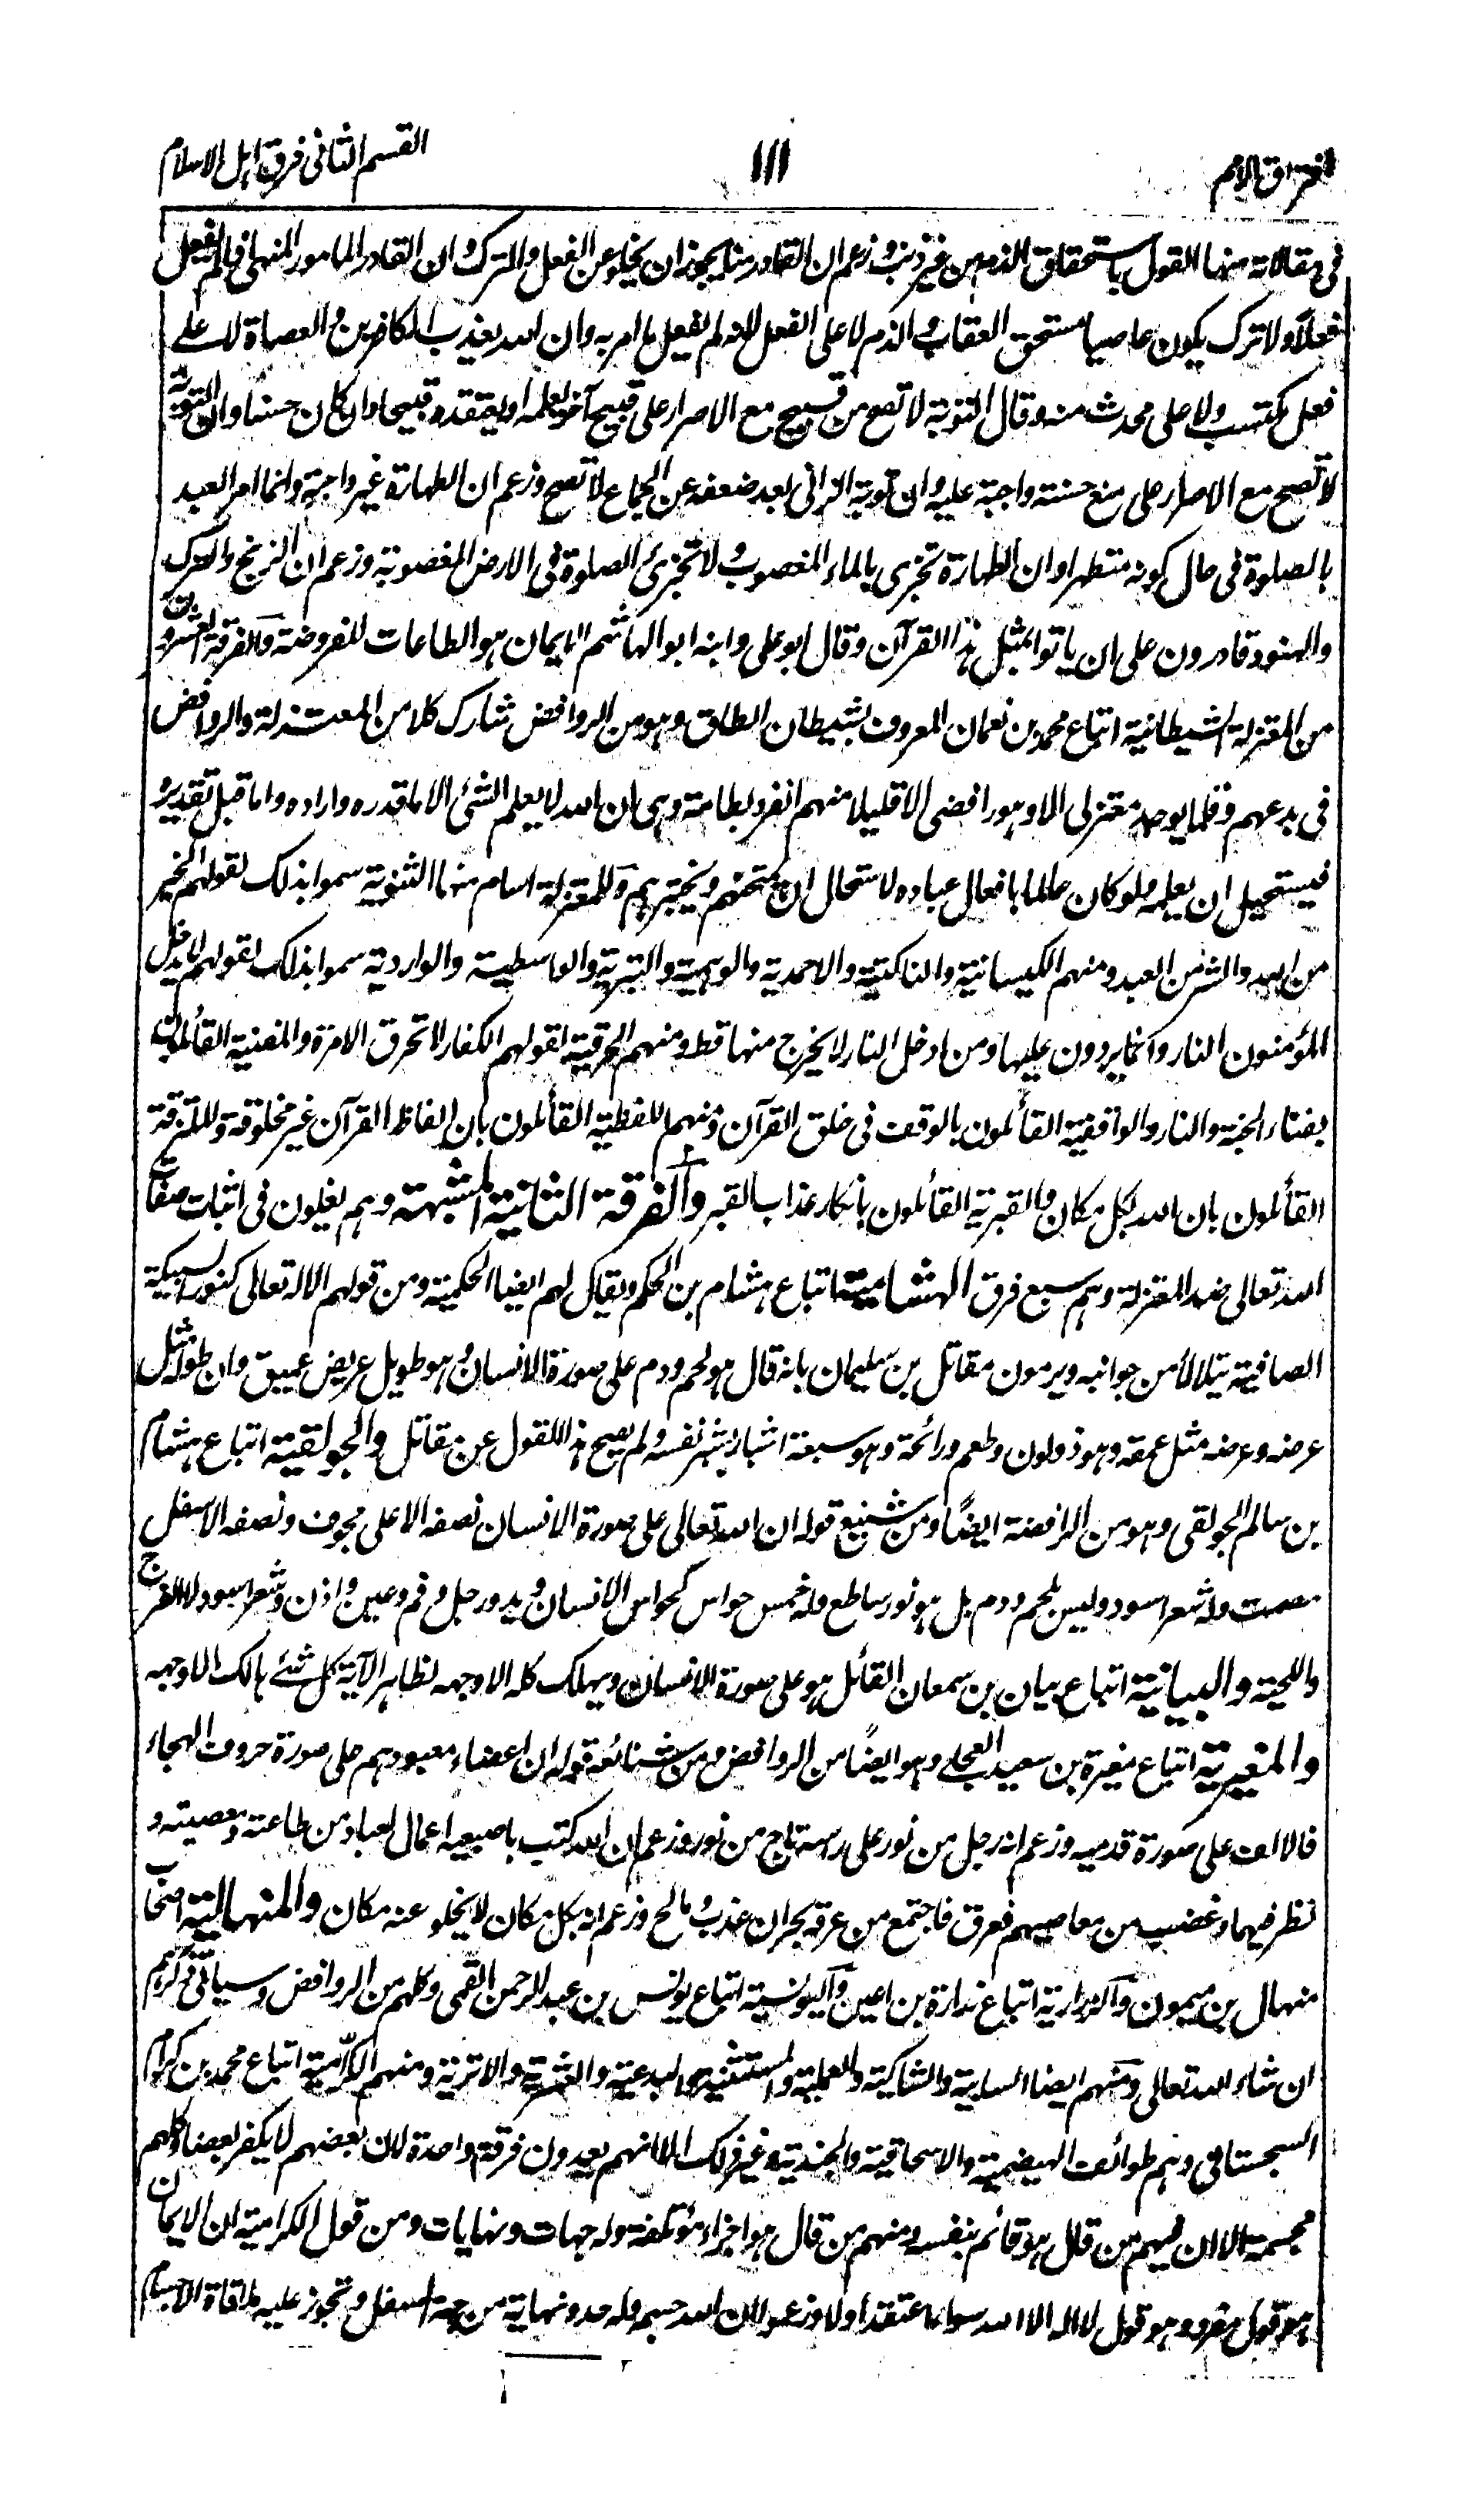 افتراق الامم ١١١ القسم الثانى فرق اهل الاسلام
فى مقالاته منها القول باستحقاق الذم من غير ذنب وزعم ان القادر منا يجوز ان يخلو عن الفعل والترك وان القادر المامور المنهى اذا لم يفعل
فعلا ولا ترك يكون عاصيا مستحق العقاب والذم لا على الفعل لانه لم يفعل ما امر به وان الله يعذب الكافرين والعصاة لا على
فعل مكتسب ولا على محدث منه وقال التوبة لا تصح من قبيح مع الاصرار على قبيح آخر يعلمه او يعتقده قبيحا وان كان حسنا وان التوبة
لا تصح مع الاصرار على منع حسنة واجبة عليه وان توبة الزانى بعد ضعفه عن الجماع لا تصح وزعم ان الطهارة غير واجبة وانما امر العبد
بالصلوة فى حال كونه متطهرا وان الطهارة تجزى بالماء المغصوب ولا تجزئ الصلوة فى الارض المغصوبة وزعم ان الزنج والترك
والهنود قادرون على ان ياتوا بمثل هذا القرآن وقال ابو على وابنه ابو الهاشم الايمان هو الطاعات المفروضة والفرقة العشرون
من المعتزلة الشيطانية اتباع محمد بن نعمان المعروف بشيطان الطاق وهو من الروافض شارك كلا من المعتزلة والروافض
فى بدعهم وقلما يوجد معتزلى الا وهو رافضى الا قليلا منهم انفرد بطامة وهى ان الله لا يعلم الشئ الا ما قدره واراده واما قبل تقديره
فيستحيل ان يعلمه ولو كان عالما بافعال عباده لاستحال ان يمتحنهم ويختبرهم وللمعتزلة اسام منها الثنوية سموا بذلك لقولهم الخير
من الله والشر من العبد ومنهم الكيسانية والناكتية والاحمدية والوهمية والبترية والواسطية والواردية سموا بذلك لقولهم لا يدخل
المؤمنون النار وانما يردون عليها ومن ادخل النار لا يخرج منها قط ومنهم الحرقية لقولهم الكفار لا تحرق الا مرة والمفنية القائلون
بفناء الجنة والنار والواقفية القائلون بالوقف فى خلق القرآن ومنهم اللفظية القائلون بان الفاظ القرآن غير مخلوقة والملتزقة
القائلون بان الله بكل مكان والقبرية القائلون بانكار عذاب القبر والفرقة الثانية المشبهة وهم يغلون فى اثبات صفات
الله تعالى ضد المعتزلة وهم سبع فرق الهشامية اتباع هشام بن الحكم ويقال لهم ايضا الحكمية ومن قولهم الاله تعالى كنور السبيكة
الصافية يتلالأ من جوانبه ويرمون مقاتل بن سليمان بانه قال هو لحم ودم على صورة الانسان وهو طويل عريض عميق وان طوله مثل
عرضه وعرضه مثل عمقه وهو ذو لون وطعم ورائحة وهو سبعة اشبار بشبر نفسه ولم يصح هذا القول عن مقاتل والجولقية اتباع هشام
بن سالم الجولقى وهو من الرافضة ايضًا ومن شنيع قوله ان الله تعالى على صورة الانسان نصفه الاعلى مجوف ونصفه الاسفل
مصمت وله شعر اسود وليس بلحم ودم بل هو نور ساطع وله خمس حواس كحواس الانسان ويد ورجل وفم وعين واذن وشعر اسود لا الفرج
واللحية والبيانية اتباع بيان بن سمعان القائل هو على صورة الانسان ويهلك كله الا وجهه لظاهر الآية كل شئ هالك الا وجهه
والمغيرية اتباع مغيرة بن سعيد العجلى وهو ايضًا من الروافض ومن شنائعه قوله ان اعضاء معبودهم على صورة حروف الهجاء
فالالف على صورة قدميه وزعم انه رجل من نور على رسه تاج من نور وزعم ان الله كتب باصبعه اعمال لعباد من طاعته ومعصيته و
نظر فيها وغضب من معاصيهم فعرق فاجتمع من عرقه بحران عذب ومالح وزعم انه بكل مكان لا يخلو عنه مكان والمنهالية اصحاب
منهال بن ميمون والزرارية اتباع زرارة بن اعين واليونسية اتباع يونس بن عبد الرحمن القمى وكلهم من الروافض وسياتى ذكرهم
ان شاء الله تعالى ومنهم ايضا السابية والشاكية والعملية والمستثنية والبدعية والعشرية والاترية ومنهم الكرّامية اتباع محمد بن كرام
السجستانى وهم طوائف الهيضمية والاسحاقية والجندية وغير ذلك الا انهم يعدون فرقة واحدة لان بعضهم لا يكفر بعضا وكلهم
مجسمة الا ان فيهم من قال هو قائم بنفسه ومنهم من قال هو اجزاء مؤتلفة وله جهات ونهايات ومن قول الكرامية ان الايمان
هو قول مفرد وهو قول لا اله الا الله سواء اعتقد او لا وزعموا ان الله جسم وله حد ونهاية من جهة السفل وتجوز عليه ملاقاة الاجسام